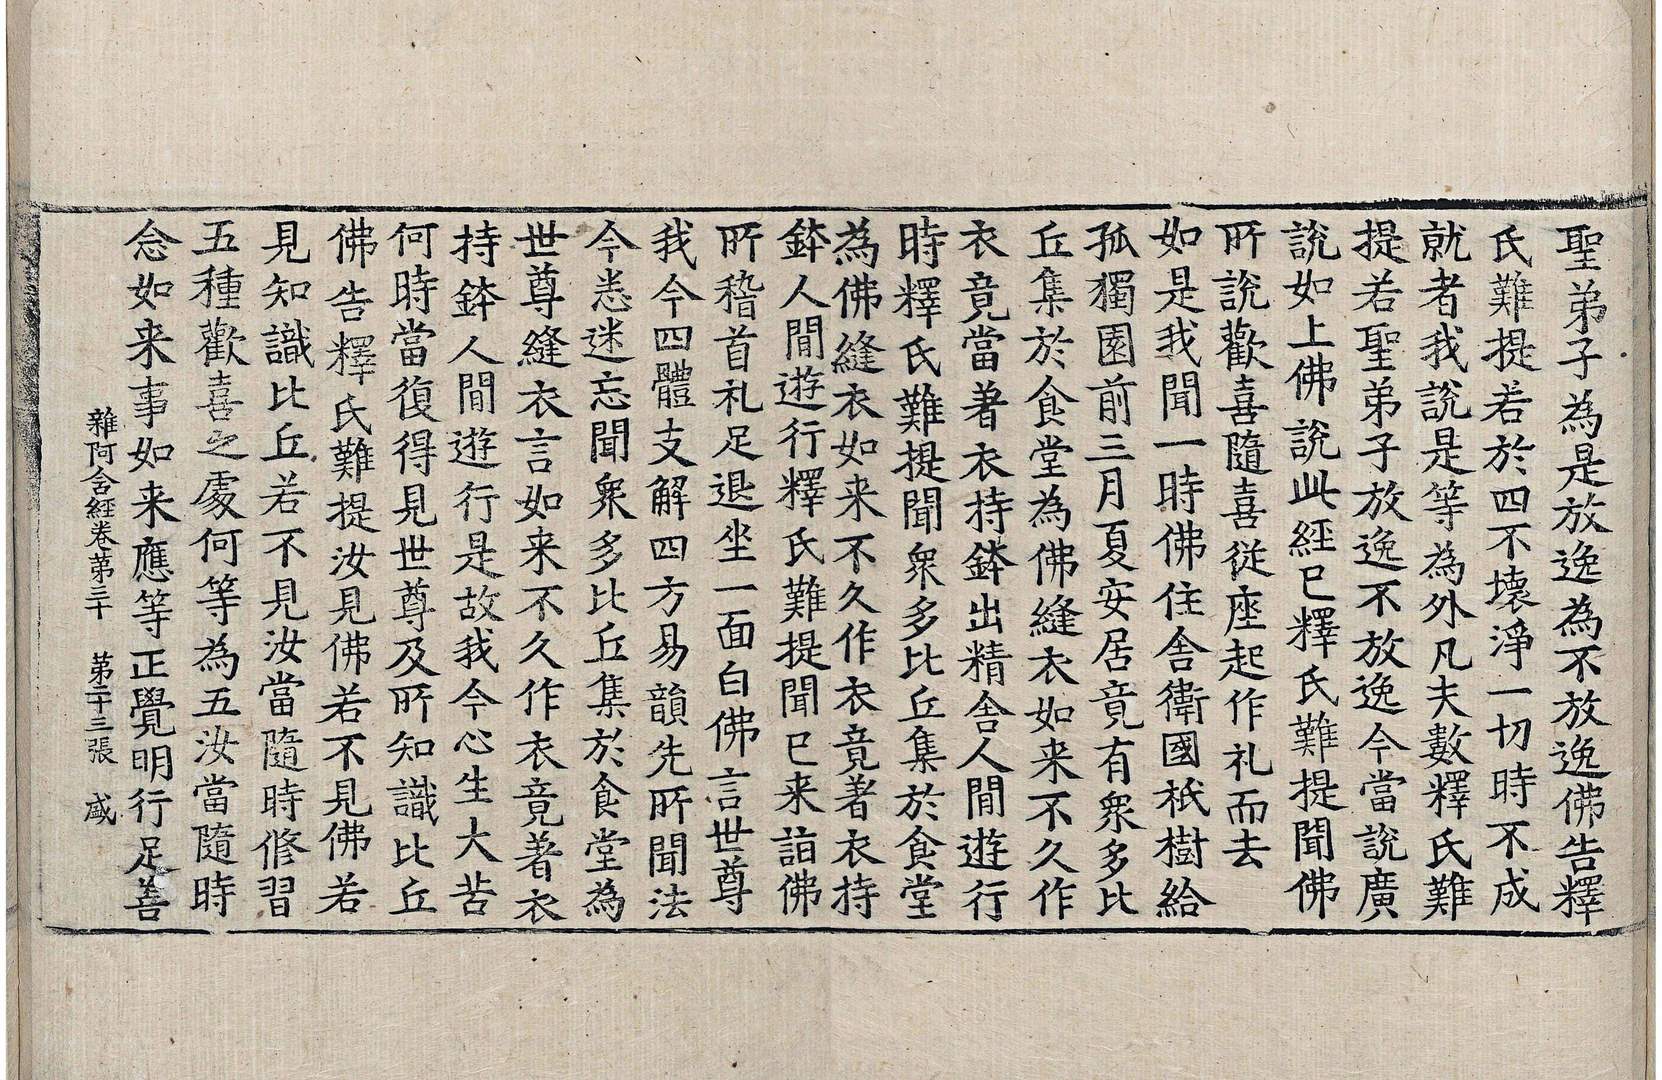 聖弟子為是放逸為不放逸佛告釋
氏難提若於四不壞淨一切時不成
就者我說是等為外凡夫數釋氏難
提若聖弟子放逸不放逸今當說廣
說如上佛說此經已釋氏難提聞佛
所說歡喜隨喜從座起作礼而去
如是我聞一時佛住舍衛國祇樹給
孤獨園前三月夏安居竟有衆多比
丘集於食堂為佛縫衣如来不久作
衣竟當著衣持鉢出精舍人間遊行
時釋氏難提聞衆多比丘集於食堂
為佛縫衣如来不久作衣竟著衣持
鉢人間遊行釋氏難提聞已来詣佛
所稽首礼足退坐一面白佛言世尊
我今四體支解四方易韻先所聞法
今悉迷忘聞衆多比丘集於食堂為
世尊縫衣言如来不久作衣竟著衣
持鉢人間遊行是故我今心生大苦
何時當復得見世尊及所知識比丘
佛告釋氏難提汝見佛若不見佛若
見知識比丘若不見汝當隨時修習
五種歡喜之處何等為五汝當隨時
念如来事如来應等正覺明行足善
雜阿含經卷第三十　第二十三張　盛